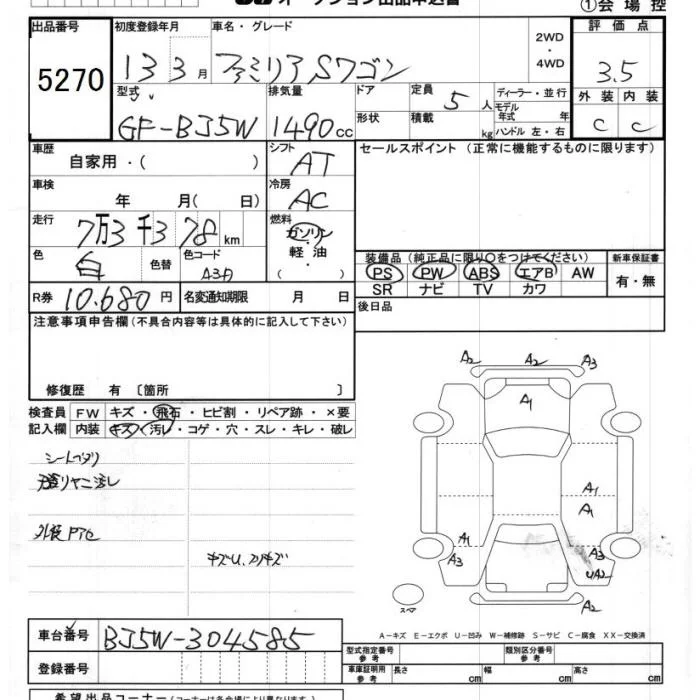 オークション出品申込書
①会場控
出品番号
5270
初度登録年月
13 3月
車名・グレード
ファミリアSワゴン
2WD
・
4WD
評価点
3.5
型式
GF-BJ5W
排気量
1490cc
ドア
形状
定員 5人
積載 kg
ディーラー・並行
モデル年式 年
ハンドル 左・右
外装 内装
C C
車歴
自家用・( )
シフト
AT
セールスポイント (正常に機能するものに限ります)
車検
年 月( 日)
冷房
AC
走行
7万3千378km
燃料
ガソリン
・
軽・油
( )
色
白
色替
色コード
A3A
装備品(純正品に限り○をつけてください)
PS PW ABS エアB AW
SR ナビ TV カワ
新車保証書
有・無
R券 10.680円
名変通知期限 月 日
後日品
注意事項申告欄(不具合内容等は具体的に記入して下さい)
修復歴 有 〔箇所 〕
検査員
記入欄
FW キズ・飛石・ヒビ割・リペア跡・×要
内装 キズ・汚レ・コゲ・穴・スレ・キレ・破レ
A2 A2 A3
A1
A1
A1
A3 A3
UA2
A2
スペア
A-キズ E-エクボ U-凹み W-補修跡 S-サビ C-腐食 XX-交換済
車台番号 BJ5W-304585
登録番号
型式指定番号
参考
類別区分番号
参考
車庫証明用
参考
長さ cm 幅 cm 高さ cm
希望出品コーナー(コーナーは各会場により異なります)